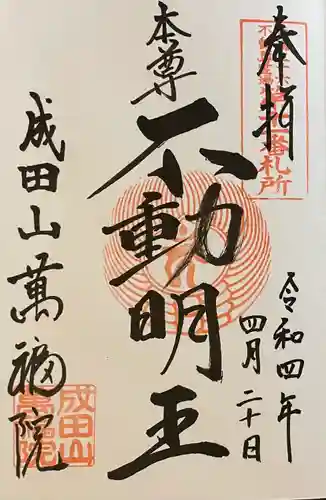 奉拝
番札所
令和四年
四月二十日
本尊
不動明王
成田山萬福院
成田山
萬福院